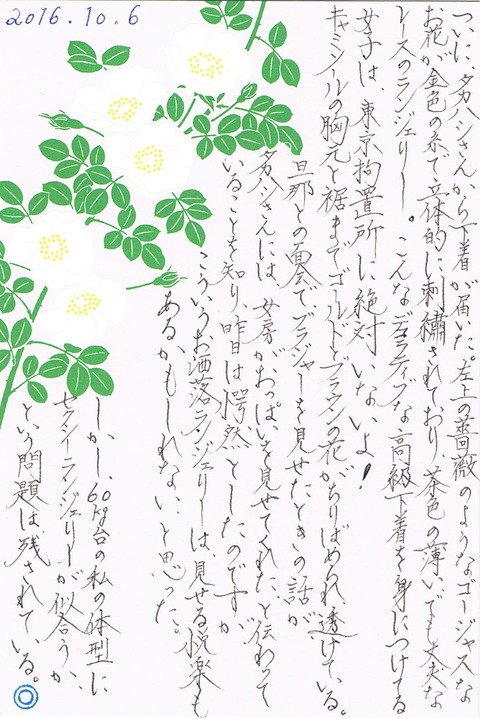 2016.10.6
ついに、タカハシさんから下着が届いた。左上の薔薇のようなゴージャスな
お花が金色の糸で立体的に刺繍されており、茶色の薄いでも丈夫な
レースのランジェリー。こんなデコラティブな高級下着を身につけてる
女子は、東京拘置所に絶対いないよ!
キャミソールの胸元と裾まわりでゴールドとブラウンの花がちりばめられ透けている。
旦那との面会でブラジャーを見せたときの話が
タカハシさんには、女房がおっぱいを見せてくれた、と伝わって
いることを知り、昨日は愕然としたのですが
こういうお洒落ランジェリーは、見せる悦楽も
あるかもしれない、と思った。
しかし、60kg台の私の体型に
セクシーランジェリーが似合うか、
という問題は残されている。